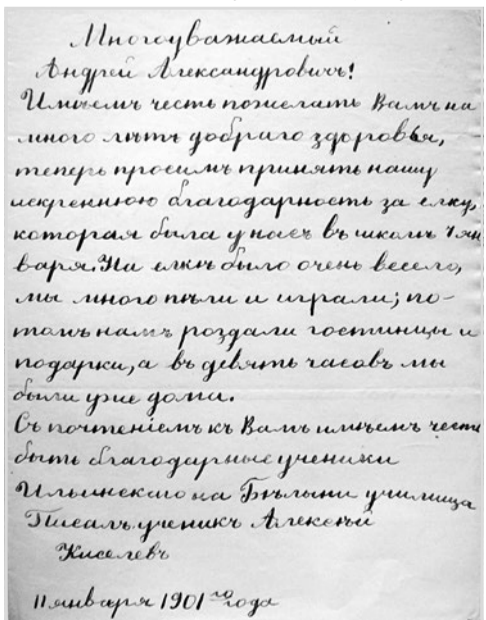 Многоуважаемый
Андрей Александровичъ!
Имѣемъ честь пожелать Вамъ на
много лѣтъ добраго здоровья,
теперь просимъ принять нашу
искреннюю благодарность за елку,
которая была у насъ въ школѣ 4 ян
варя. На елкѣ было очень весело,
мы много пѣли и играли; по-
томъ намъ роздали гостинцы и
подарки, а въ девять часовъ мы
были уже дома.
Съ почтеніемъ къ Вамъ имѣемъ честь
быть благодарные ученики
Ильинскаго на Бѣлыни училища
Писалъ ученикъ Алексѣй
Киселевъ
11 января 1901 го года